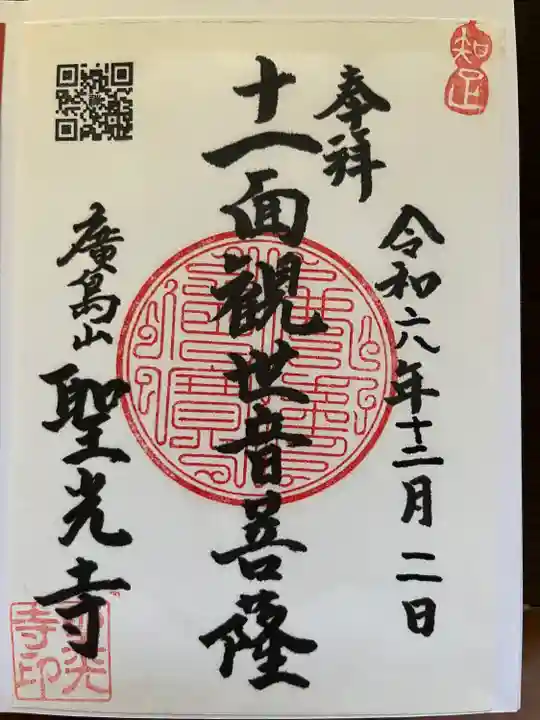 知足
奉拝
令和六年十二月二日
十一面観世音菩薩
廣島山
聖光寺
光
寺印